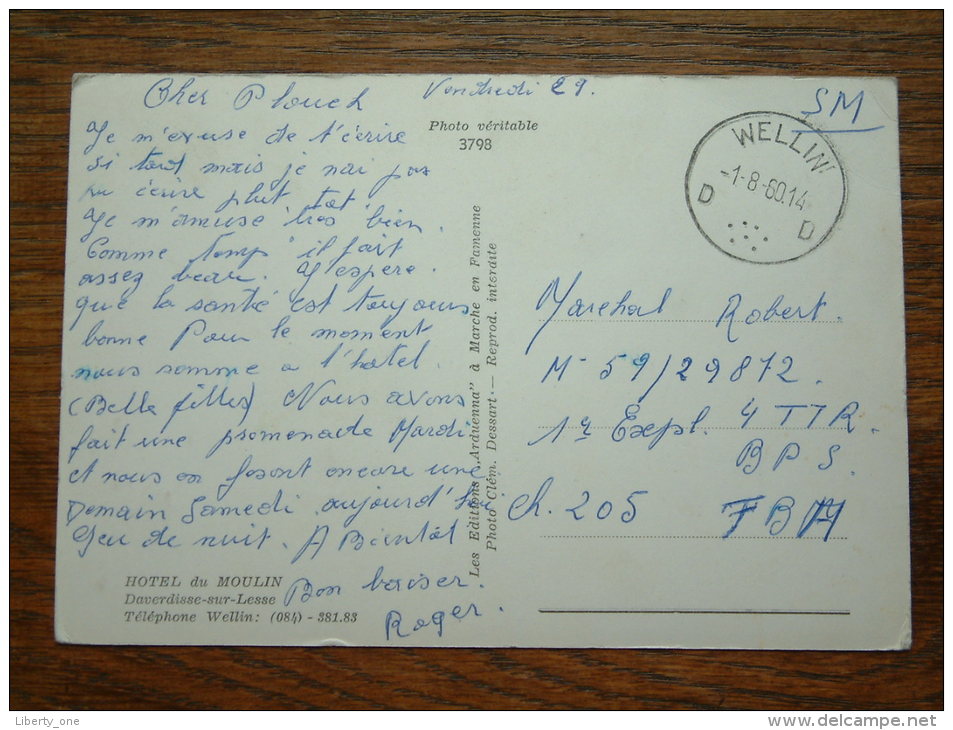 Cher Plouch Vendredi 29.
Je m'excuse de t'écrire
si tard mais je nai pas
pu écrire plut tôt
Je m'amuse très bien.
Comme temp il fait
assez beau. J'espere.
que la santé est toujours
bonne Pour le moment
nous somme a l'hotel.
(Belle filles) Nous avons
fait une promenade Mardi
et nous en fesont encore une
Demain Samedi aujourd'hui
Jeu de nuit. A Bientôt
Bon baiser.
Roger.
HOTEL du MOULIN
Daverdisse-sur-Lesse
Téléphone Wellin: (084) - 381.83
Photo véritable
3798
Les Editions „Arduenna" à Marche en Famenne
Photo Clém. Dessart. — Reprod. interdite
SM
WELLIN
-1-8-60.14
D D
Marechal Robert.
M 59/29872.
1e Expl. 4 TTR.
B P S.
Ch. 205 F B A
Liberty_one